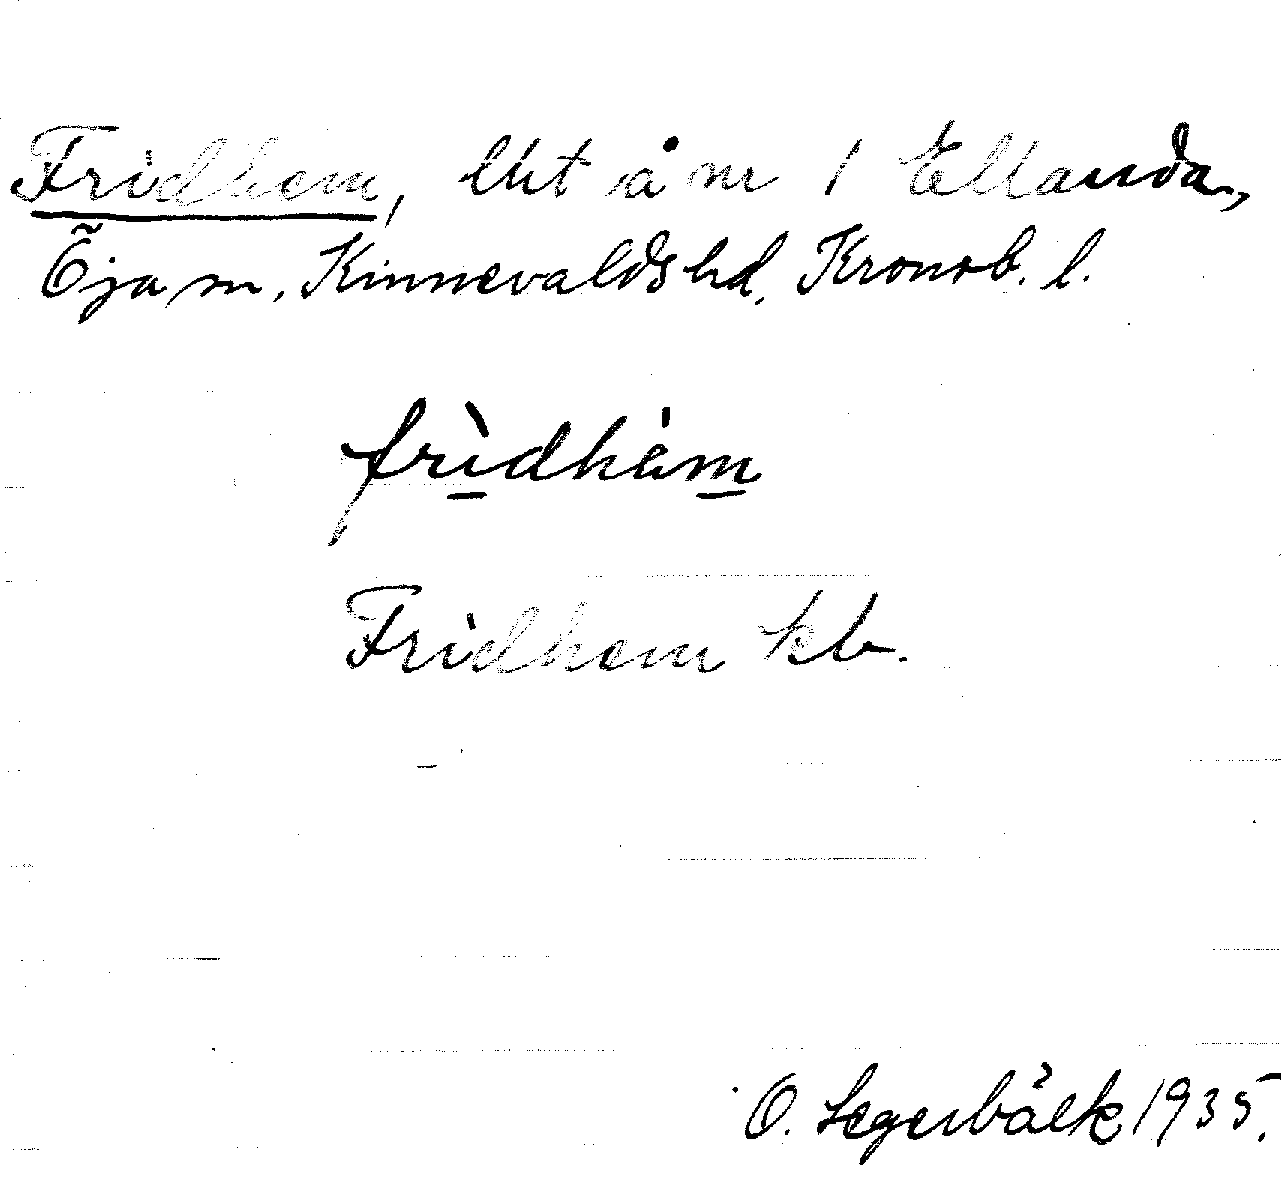 Fridhem, lht å nr 1 Ellanda,
Öja sn, Kinnevalds hd, Kronob. l.
fridhäm
Fridhem kb.
O. Segerbäck 1935.